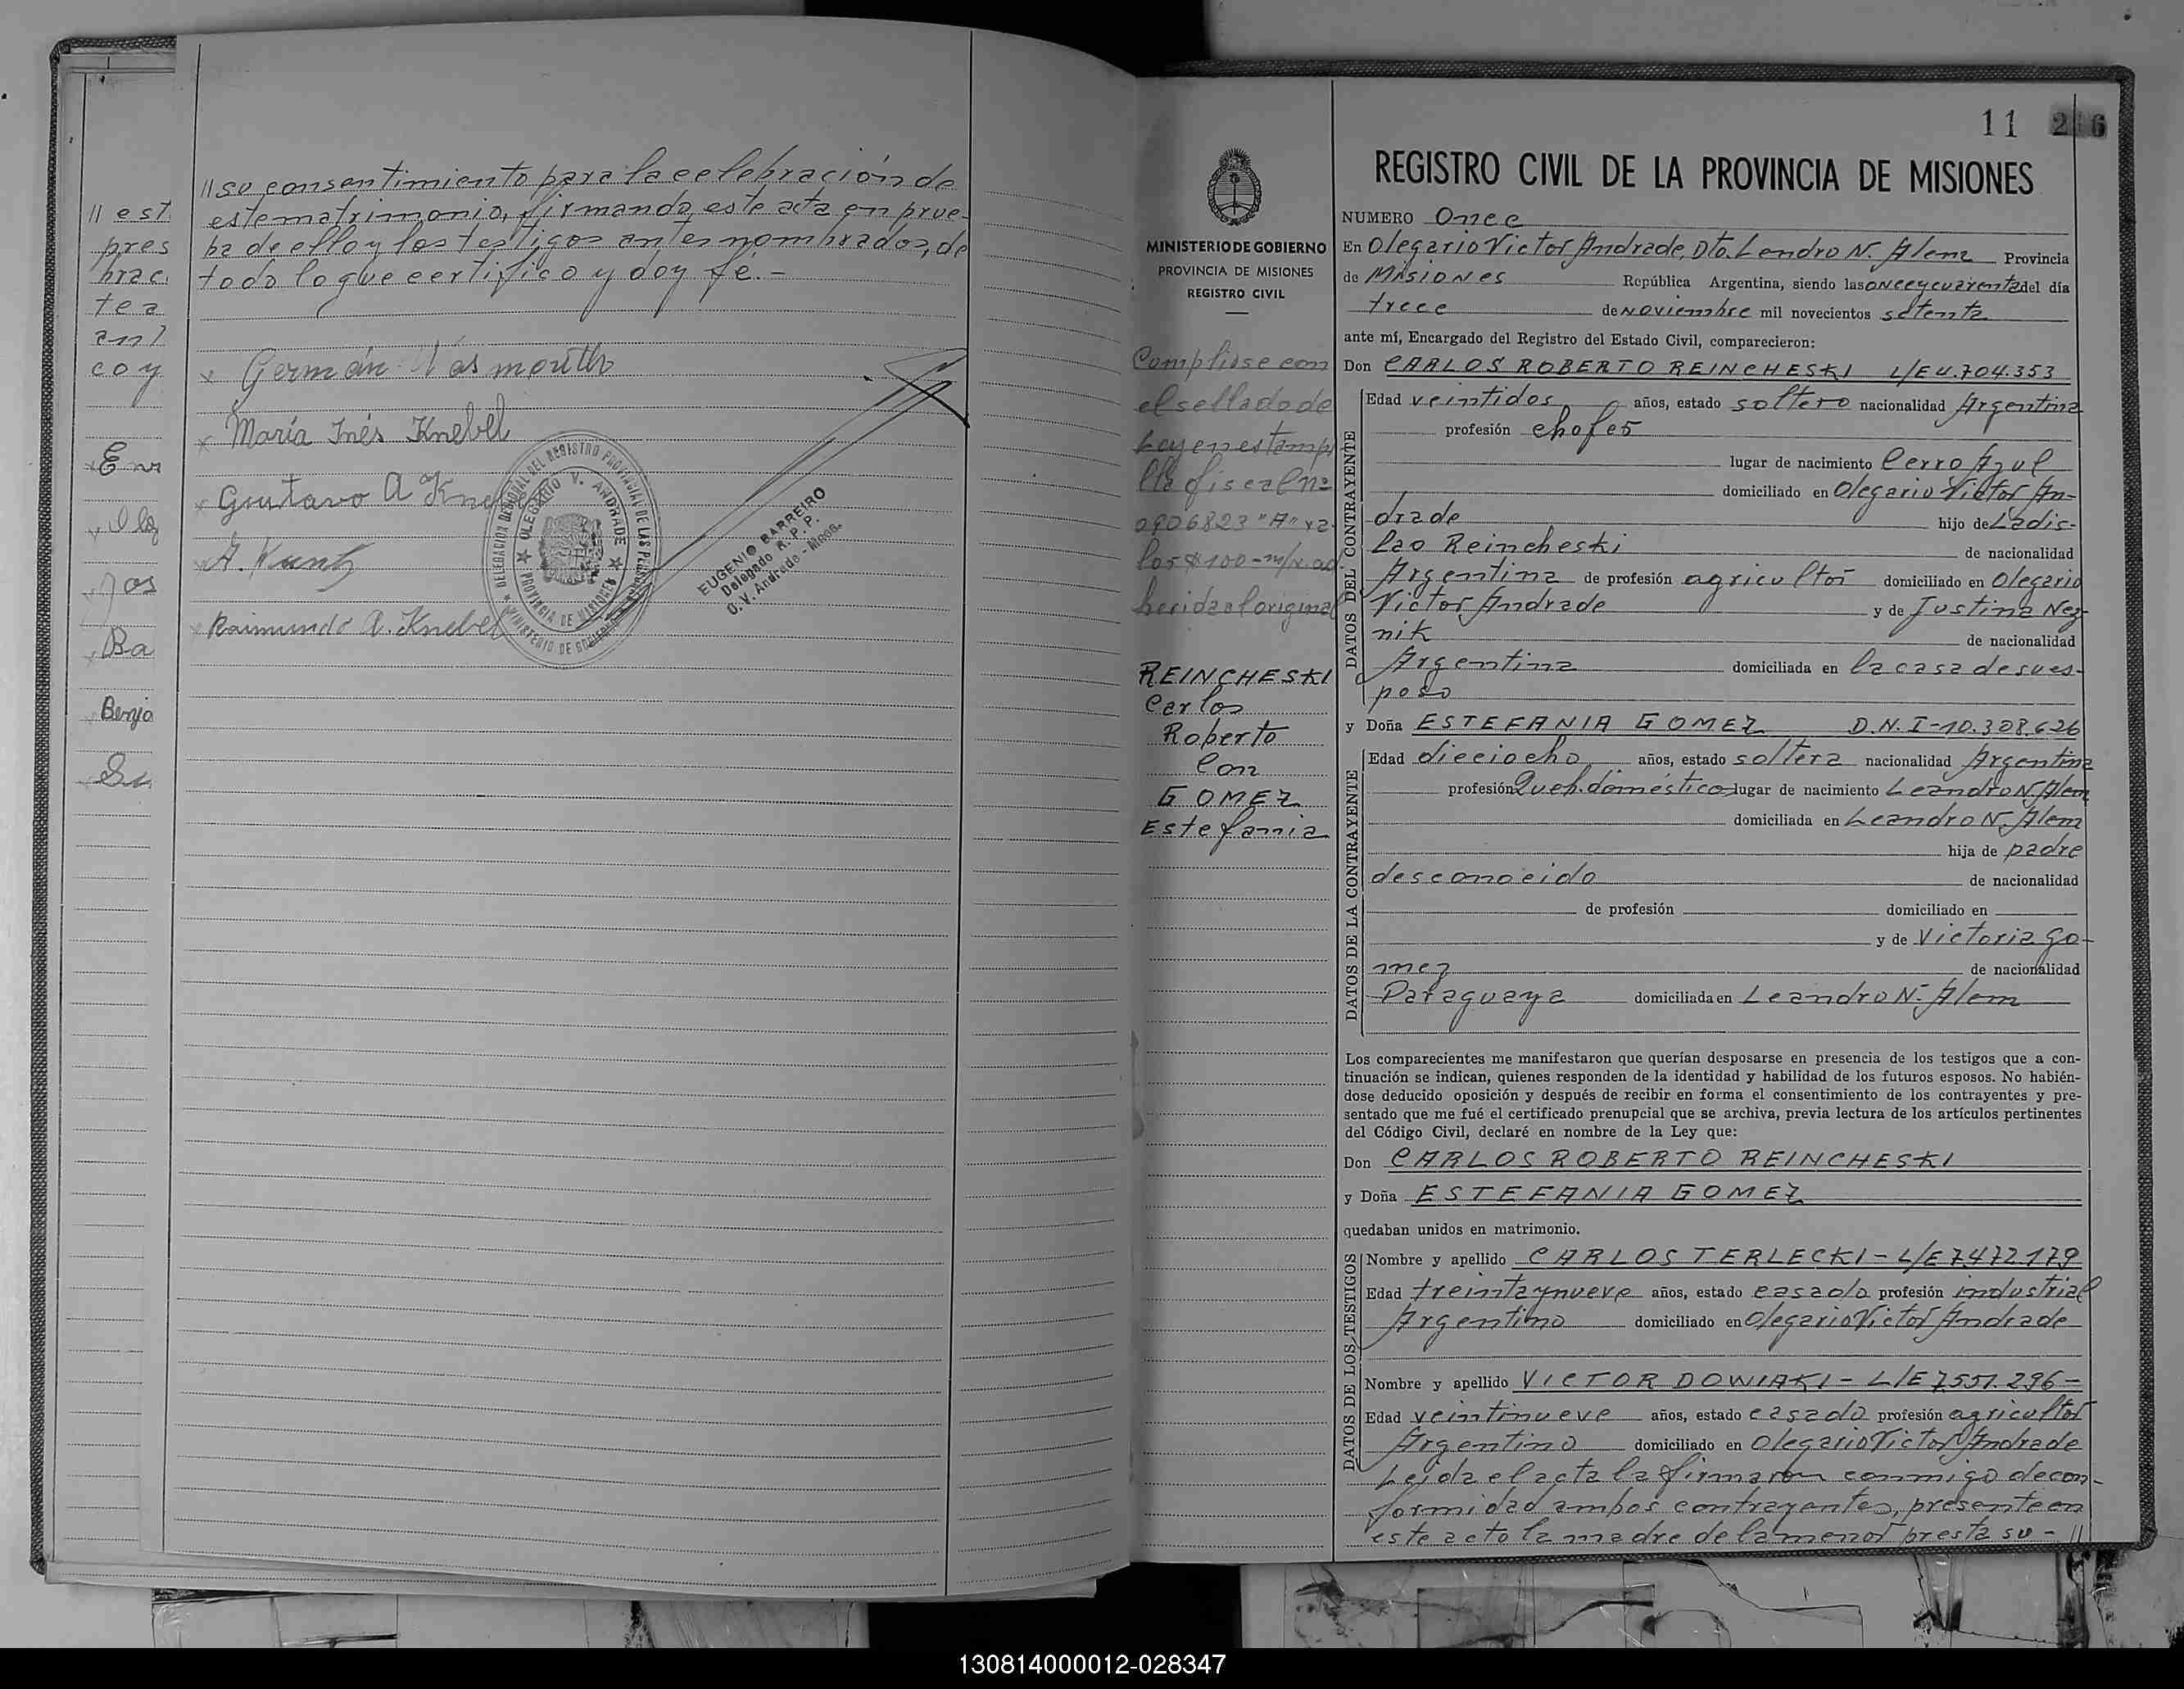 // est
pres
brac
tea
coy
// su consentimiento para la celebración de
este matrimonio, firmando este acta en prue-
ba de ello y los testigos antes nombrados, de
todo lo que certifico y doy fé.-
x Germán
x María Inés Knebel
x Gustavo A
x Raimundo A. Knebel
DELEGACION DEL REGISTRO PROVINCIAL DE LAS PERSONAS
★ OLEGARIO V. ANDRADE ★
PROVINCIA DE MISIONES
MINISTERIO DE GOBIERNO
EUGENIO BARREIRO
Delegado R. P. P.
O. V. Andrade - Mnes.
Ba
Benja
MINISTERIO DE GOBIERNO
PROVINCIA DE MISIONES
REGISTRO CIVIL
Cumpliose con
el sellado de
Ley en estampi
lla fiscal nº
0906823 "A" va
los $ 100-m/n ad
herida al original
REINCHESKI
Carlos
Roberto
Con
GOMEZ
Estefania
11
REGISTRO CIVIL DE LA PROVINCIA DE MISIONES
NUMERO Once
En Olegario Victor Andrade, Dto. Lendro N. Alem Provincia
de Misiones República Argentina, siendo las once y cuarenta del día
trece de noviembre mil novecientos setenta
ante mí, Encargado del Registro del Estado Civil, comparecieron:
Don CARLOS ROBERTO REINCHESKI L/E 4.704.353
DATOS DEL CONTRAYENTE
Edad veintidos años, estado soltero nacionalidad Argentina
profesión chofer
lugar de nacimiento Cerro Azul
domiciliado en Olegario Victor An-
drade hijo de Ladis-
lao Reincheski de nacionalidad
Argentina de profesión agricultor domiciliado en Olegario
Victor Andrade y de Justina Nez-
nik de nacionalidad
Argentina domiciliada en la casa de su es-
poso
y Doña ESTEFANIA GOMEZ D.N.I-10.308.626
DATOS DE LA CONTRAYENTE
Edad dieciocho años, estado soltera nacionalidad Argentina
profesión Queh. domésticos lugar de nacimiento Leandro N. Alem
domiciliada en Leandro N. Alem
hija de padre
desconocido de nacionalidad
de profesión domiciliado en
y de Victoria Go-
mez de nacionalidad
Paraguaya domiciliada en Leandro N. Alem
Los comparecientes me manifestaron que querían desposarse en presencia de los testigos que a con-
tinuación se indican, quienes responden de la identidad y habilidad de los futuros esposos. No habién-
dose deducido oposición y después de recibir en forma el consentimiento de los contrayentes y pre-
sentado que me fué el certificado prenupcial que se archiva, previa lectura de los artículos pertinentes
del Código Civil, declaré en nombre de la Ley que:
Don CARLOS ROBERTO REINCHESKI
y Doña ESTEFANIA GOMEZ
quedaban unidos en matrimonio.
DATOS DE LOS TESTIGOS
Nombre y apellido CARLOS TERLECKI - L/E 7.472.179
Edad treinta y nueve años, estado casado profesión industrial
Argentino domiciliado en Olegario Victor Andrade
Nombre y apellido VICTOR DOWIAKI - L/E 7.551.296-
Edad veintinueve años, estado casado profesión agricultor
Argentino domiciliado en Olegario Victor Andrade
Leida el acta la firmaron conmigo de con-
formidad ambos contrayentes, presente en
este acto la madre de la menor presta su - //
130814000012-028347